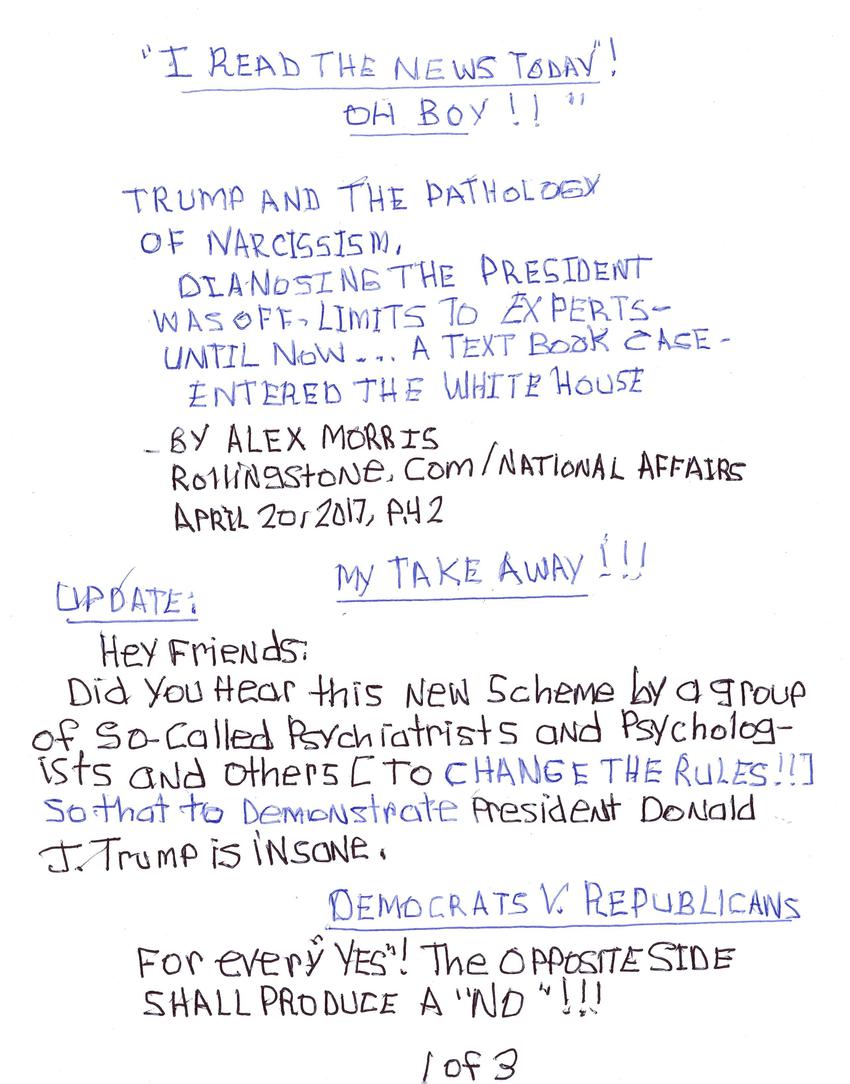 "I READ THE NEWS TODAY"!
OH BOY!! "
TRUMP AND THE PATHOLOGY
OF NARCISSISM,
DIANOSING THE PRESIDENT
WAS OFF-LIMITS TO EXPERTS-
UNTIL NOW... A TEXT BOOK CASE-
ENTERED THE WHITE HOUSE
- BY ALEX MORRIS
Rollingstone.Com/NATIONAL AFFAIRS
APRIL 20, 2017, P.42
MY TAKE AWAY!!!
UPDATE:
Hey Friends:
Did You Hear this New Scheme by a group
of So-Called Psychiatrists and Psycholog-
ists and others [ To CHANGE THE RULES!!]
So that to Demonstrate President Donald
J. Trump is iNSane.
DEMOCRATS V. REPUBLICANS
For every "YES"! The OPPOSITE SIDE
SHALL PRODUCE A "NO"!!!
1 of 3